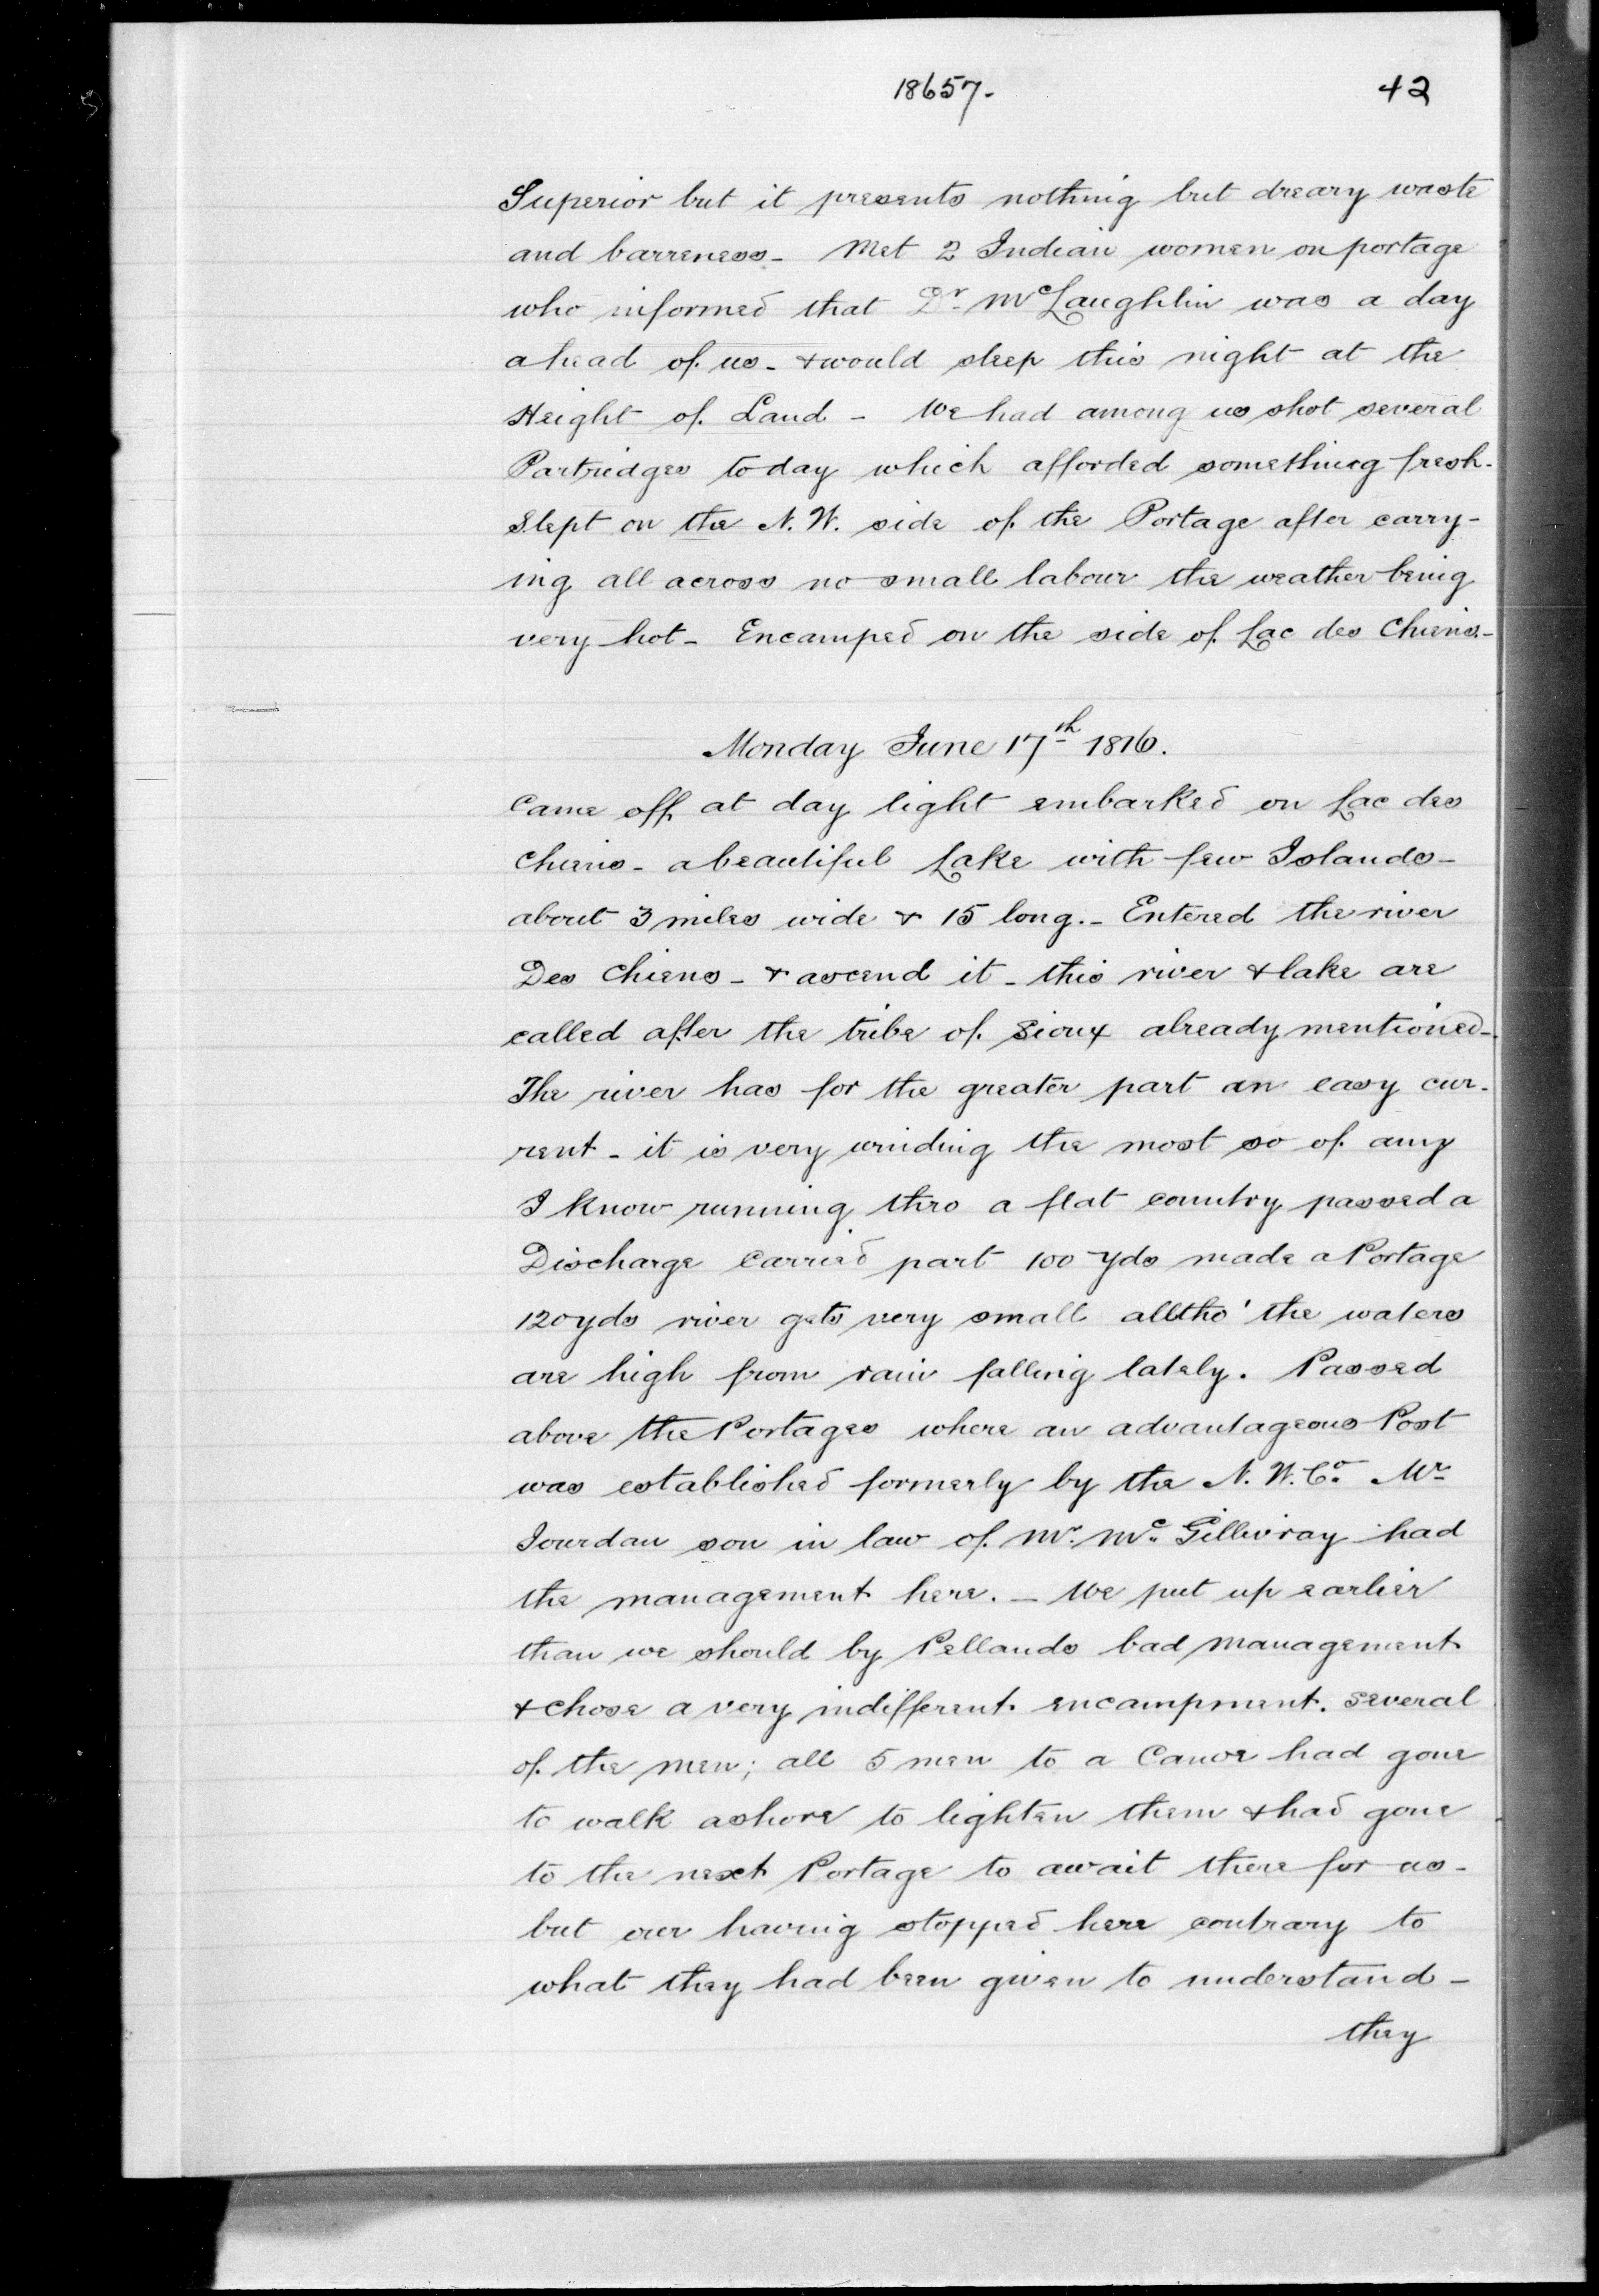 18657- 42
Superior but it presents nothing but dreary waste
and barreness - Met 2 Indian women on portage
who informed that Dr. McLaughlin was a day
ahead of us - & would sleep this night at the
Height of Land - We had among us shot several
Partridges today which afforded something fresh.
Slept on the N.W. side of the Portage after carry-
ing all across no small labour the weather being
very hot - Encamped on the side of Lac des Chiens -
Monday June 17th 1816.
Came off at day light embarked on Lac des
Chiens - a beautiful Lake with few Islands -
about 3 miles wide & 15 long. - Entered the river
Des Chiens - & ascend it - this river & lake are
called after the tribe of Sioux already mentioned -
The river has for the greater part an easy cur-
rent - it is very winding the most so of any
I know running thro a flat country passed a
Discharge carried part 100 yds made a Portage
120 yds river gets very small alltho' the waters
are high from rain falling lately. Passed
above the Portages where an advantageous Post
was established formerly by the N.W.Co. Mr
Jourdan son in law of Mr. Mc. Gillivray had
the management here. - We put up earlier
than we should by Pellands bad management
& chose a very indifferent encampment. Several
of the men; all 5 men to a Canoe had gone
to walk ashore to lighten them & had gone
to the next Portage to await there for us -
but our having stopped here contrary to
what they had been given to understand -
they